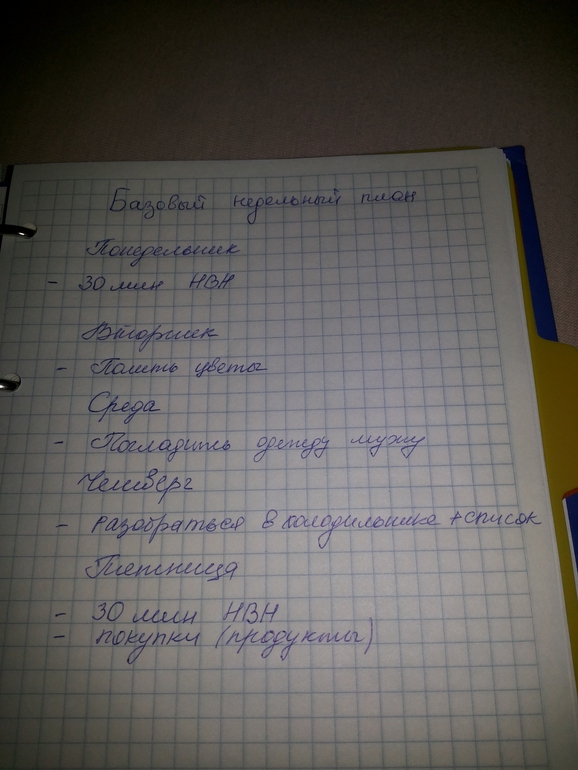 Базовый недельный план
Понедельник
- 30 мин НВН
Вторник
- Полить цветы
Среда
- Погладить одежду мужу
Четверг
- разобраться в холодильнике + список
Пятница
- 30 мин НВН
- покупки (продукты)